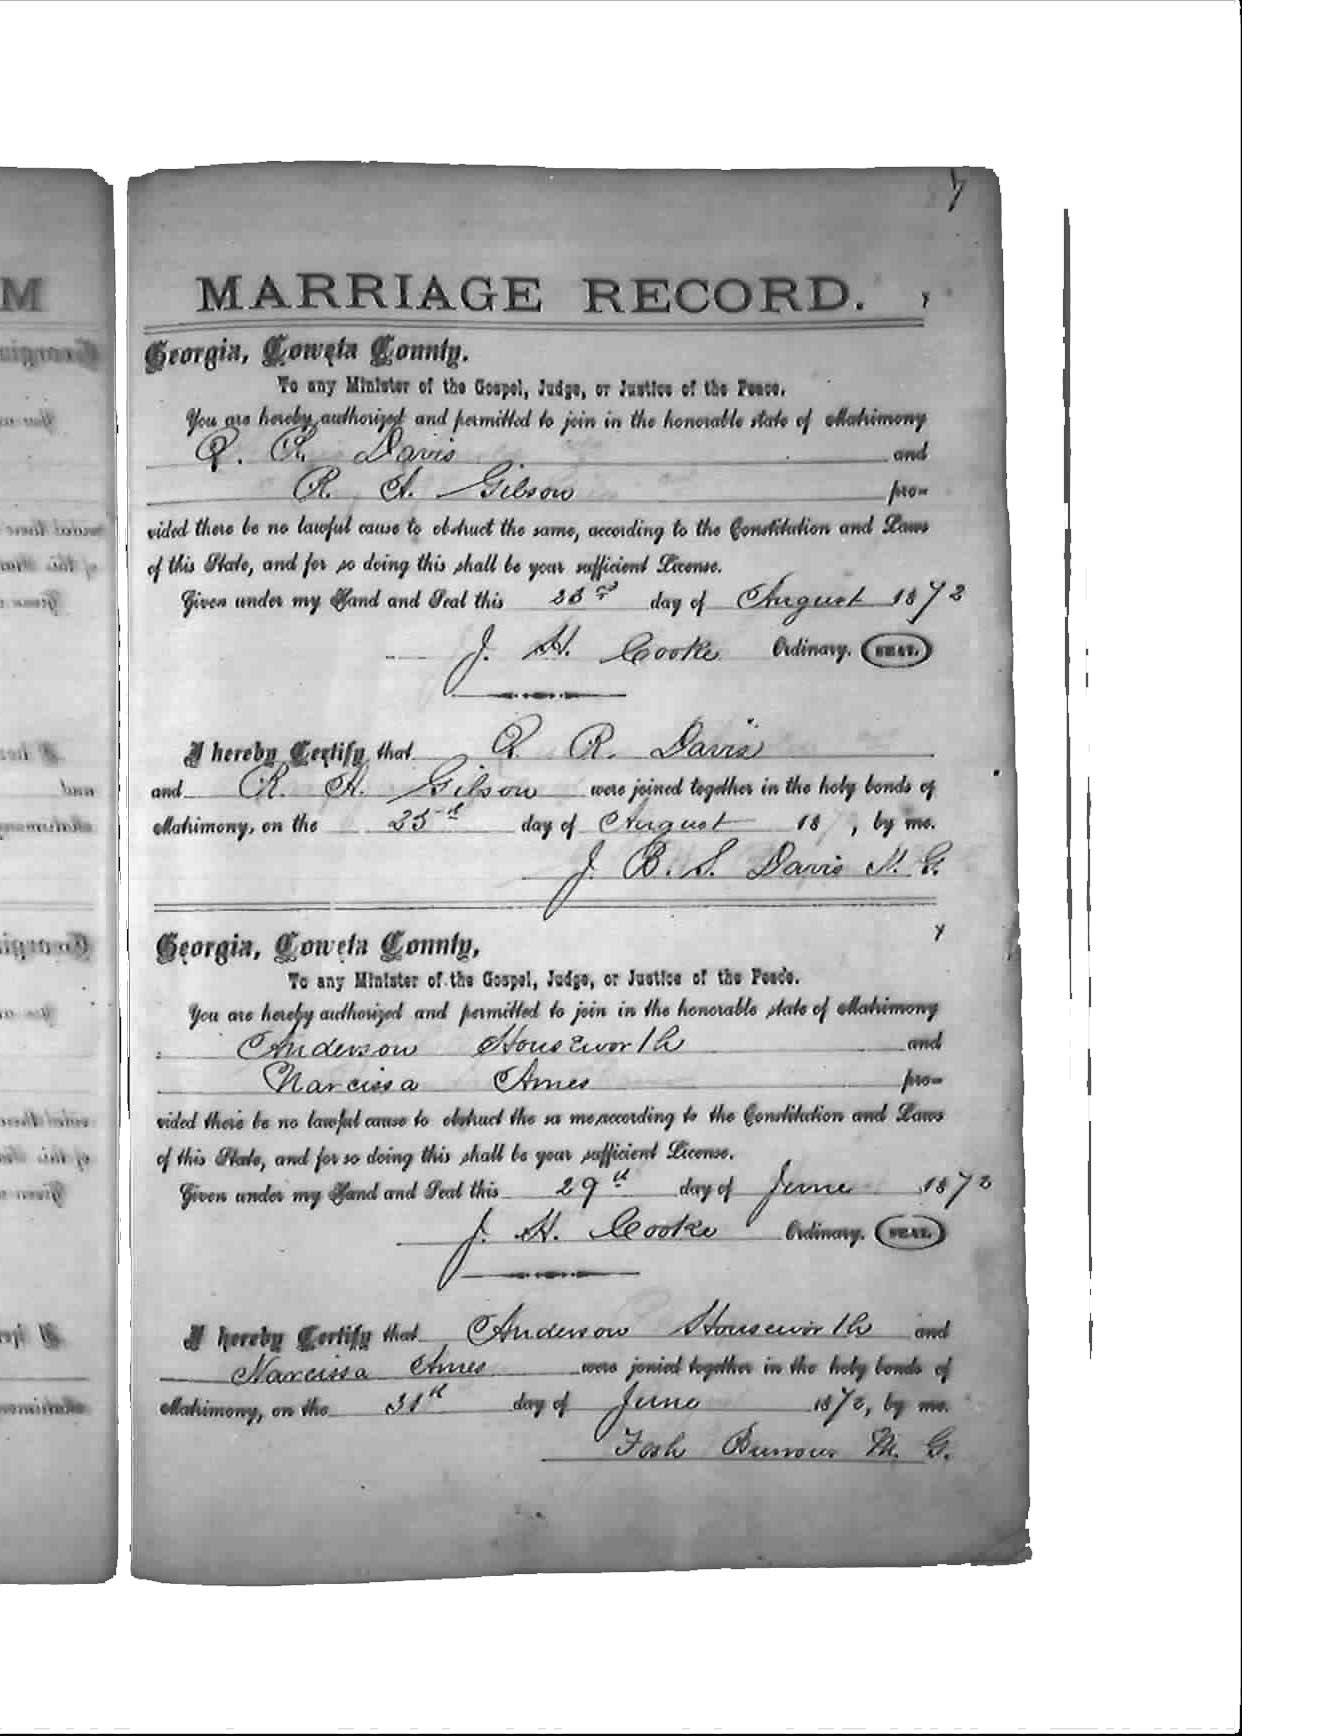 7
MARRIAGE RECORD.
Georgia, Coweta County.
To any Minister of the Gospel, Judge, or Justice of the Peace.
You are hereby authorized and permitted to join in the honorable state of Matrimony
Q. R. Davis and
R. A. Gibson pro-
vided there be no lawful cause to obstruct the same, according to the Constitution and Laws
of this State, and for so doing this shall be your sufficient License.
Given under my Hand and Seal this day of August 1872
J. H. Cooke Ordinary. SEAL.
I hereby Certify that Q R. Davis
and R. A. Gibson were joined together in the holy bonds of
Matrimony, on the 25th day of August 187, by me.
J. B. S. Davis M. G.
Georgia, Coweta County,
To any Minister of the Gospel, Judge, or Justice of the Peace.
You are hereby authorized and permitted to join in the honorable state of Matrimony
Anderson Houseworth and
Narcissa Ames pro-
vided there be no lawful cause to obstruct the sa me, according to the Constitution and Laws
of this State, and for so doing this shall be your sufficient License.
Given under my Hand and Seal this 29th day of June 1872
J. H. Cooke Ordinary. SEAL.
I hereby Certify that Anderson Houseworth and
Narcissa Ames were jonied together in the holy bonds of
Matrimony, on the 31th day of June 1872, by me.
M. G.